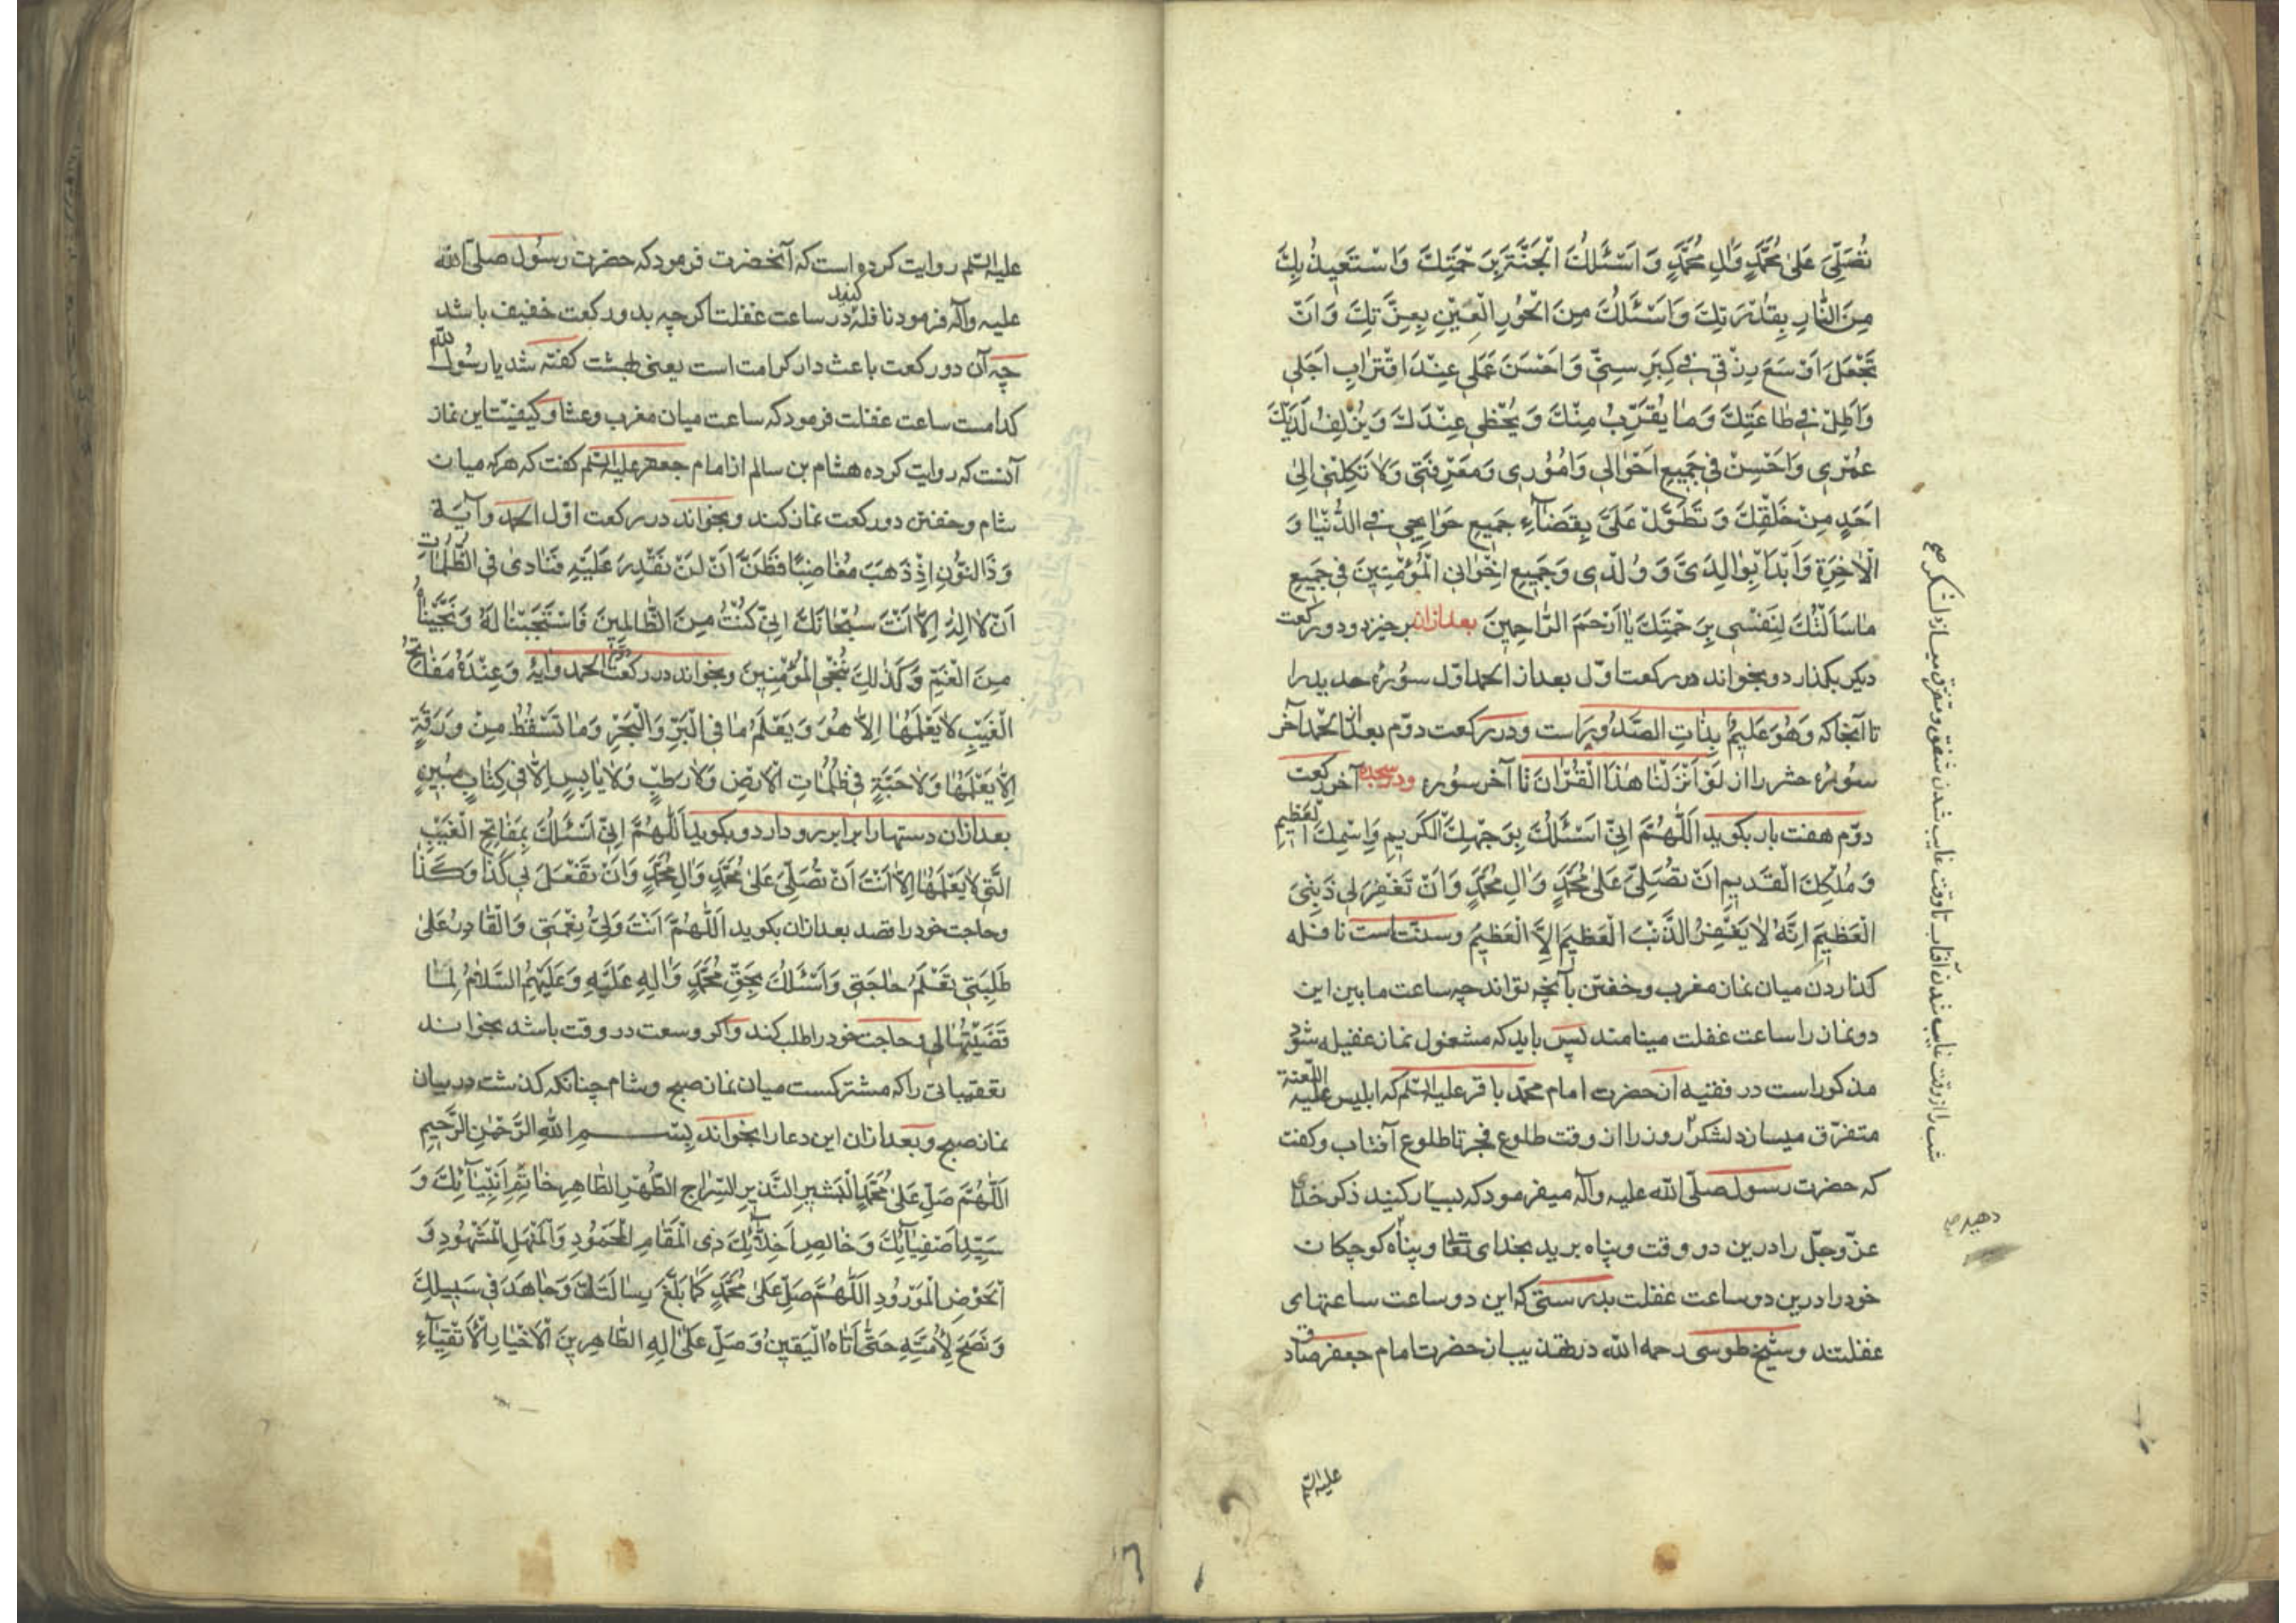 تُصَلِّیَ عَلیٰ مُحَمَّدٍ وَاٰلِ مُحَمَّدٍ وَ اَسْئَلُكَ الْجَنَّةَ بِرَحْمَتِكَ وَاسْتَعیِذُ بِكَ
مِنَ النّٰارِ بِقُدْرَتِكَ وَاَسْئَلُكَ مِنَ الْحُورِ الْعیِنِ بِعِزَّتِكَ وَ اَنْ
تَجْعَلَ اَوْسَعَ رِزْقی فی كِبَرِ سِنّی وَ اَحْسَنَ عَمَلی عِنْدَ اقْتِرٰابِ اَجَلی
وَ اَطِلْ فی طٰاعَتِكَ وَ مٰا یُقَرِّبُ مِنْكَ وَ یُحْظی عِنْدَكَ وَ یُزْلِفُ لَدَیْكَ
عُمْری وَ اَحْسِنْ فی جَمیعِ اَحْوٰالی وَ اُمُوری وَ مَعْرِفَتی وَلاٰ تَكِلْنی اِلیٰ
اَحَدٍ مِنْ خَلْقِكَ وَ تَطَوَّلْ عَلَیَّ بِقَضٰآءِ جَمیعِ حَوٰایِجی فی الدُّنْیٰا وَ
الْاٰخِرَةِ وَ ابْدَاْ بِوٰالِدَیَّ وَ وُلْدی وَ جَمیعِ اِخْوٰانی الْمُؤْمِنینَ فی جَمیعِ
مٰا سَاَلْتُكَ لِنَفْسی بِرَحْمَتِكَ یٰا اَرْحَمَ الرّٰاحِمینَ بعدازان برخیزد و دو رکعت
دیکر بکذارد و بخواند در رکعت اوّل بعد از الحمد اول سورهٔ حدید را
تا آنجا که وَهُوَ عَلیِمٌ بِذٰاتِ الصُّدُورِ است و در رکعت دوّم بعد از الحمد آخر
سورهٔ حشر را از لَوْ اَنْزَلْنٰا هٰذَا الْقُرْاٰنَ تا آخر سوره و در سجده آخر رکعت
دوّم هفت بار بکوید اَللّٰهُمَّ اِنّی اَسْئَلُكَ بِوَجْهِكَ الْكَریمِ وَ اِسْمِكَ الْعَظیمِ
وَ مُلْكِكَ الْقَدیمِ اَنْ تُصَلِّیَ عَلیٰ مُحَمَّدٍ وَ اٰلِ مُحَمَّدٍ وَ اَنْ تَغْفِرَ لی ذَنْبیَ
الْعَظیمَ اِنَّهُ لاٰ یَغْفِرُ الذَّنْبَ الْعَظیمَ اِلاَّ الْعَظیمُ و سنّت است نافله
کذاردن میان نماز مغرب و خفتن بآنچه تواند چه ساعت ما بین این
دو نماز را ساعت غفلت مینامند پس باید که مشغول نماز غفیله شود
مذکور است در فقیه ان حضرت امام محمّد باقر علیه السّلم که ابلیس علیه اللّعنة
متفرّق میسازد لشکر روز را از وقت طلوع فجر تا طلوع آفتاب و کفت
که حضرت رسول صلّی الله علیه وآله میفرمود که بسیار کنید ذکر خدای
عزّوجلّ را درین دو وقت و پناه برید بخدای تعالی و پناه کوچکان
خود را درین دو ساعت غفلت بدرستی که این دو ساعت ساعتهای
غفلتند و شیخ طوسی رحمه الله در تهذیب از حضرت امام جعفر صادق
علیه السّلم
شب را از وقت غایب شدن آفتاب تا وقت غایب شدن شفق و متفرق میسازد لشکر صح
دهید صح
علیه السّلم روایت کرده است که آنحضرت فرمود که حضرت رسول صلّی الله
علیه وآله فرمود نافله کنید در ساعت غفلت اکرچه بدو رکعت خفیف باشد
چه آن دو رکعت باعث دار کرامت است یعنی بهشت کفته شد یا رسول الله
کدامست ساعت غفلت فرمود که ساعت میان مغرب و عشا و کیفیّت این نماز
آنست که روایت کرده هشام بن سالم از امام جعفر علیه السّلم کفت که هرکه میان
شام و خفتن دو رکعت نماز کند و بخواند در رکعت اوّل الحمد و آیة
وَ ذَا النُّونِ اِذْ ذَهَبَ مُغٰاضِبًا فَظَنَّ اَنْ لَنْ نَقْدِرَ عَلَیْهِ فَنٰادیٰ فِی الظُّلُمٰاتِ
اَنْ لاٰ اِلٰهَ اِلاّٰ اَنْتَ سُبْحٰانَكَ اِنّی كُنْتُ مِنَ الظّٰالِمِینَ فَاسْتَجَبْنٰا لَهُ وَ نَجَّیْنٰاهُ
مِنَ الْغَمِّ وَ كَذٰلِكَ نُنْجِی الْمُؤْمِنِینَ و بخواند در رکعت دوم الحمد و آیهٔ وَ عِنْدَهُ مَفٰاتِحُ
الْغَیْبِ لاٰ یَعْلَمُهٰا اِلاّٰ هُوَ وَ یَعْلَمُ مٰا فِی الْبَرِّ وَ الْبَحْرِ وَ مٰا تَسْقُطُ مِنْ وَرَقَةٍ
اِلاّٰ یَعْلَمُهٰا وَ لاٰ حَبَّةٍ فی ظُلُمٰاتِ الْاَرْضِ وَ لاٰ رَطْبٍ وَ لاٰ یٰابِسٍ اِلاّٰ فی كِتٰابٍ مُبینٍ
بعدازان دستها را برابر رو دارد و بکوید اَللّٰهُمَّ اِنّی اَسْئَلُكَ بِمَفٰاتِحِ الْغَیْبِ
الَّتی لاٰ یَعْلَمُهٰا اِلاّٰ اَنْتَ اَنْ تُصَلِّیَ عَلیٰ مُحَمَّدٍ وَ اٰلِ مُحَمَّدٍ وَ اَنْ تَفْعَلَ بی كَذٰا وَ كَذٰا
و حاجت خود را قصد بعدازان بکوید اَللّٰهُمَّ اَنْتَ وَلِیُّ نِعْمَتی وَ الْقٰادِرُ عَلیٰ
طَلِبَتی تَعْلَمُ حٰاجَتی وَ اَسْئَلُكَ بِحَقِّ مُحَمَّدٍ وَ اٰلِهِ عَلَیْهِ وَ عَلَیْهِمُ السَّلاٰمُ لَمّٰا
قَضَیْتَهٰا لی و حاجت خود را طلب کند و اکر وسعت در وقت باشد بخواند
تعقیباتی را که مشترکست میان نماز صبح و شام چنانکه کذشت در بیان
نماز صبح و بعدازان این دعا را بخواند بِسْمِ اللّٰهِ الرَّحْمٰنِ الرَّحِیمِ
اَللّٰهُمَّ صَلِّ عَلیٰ مُحَمَّدٍ الْبَشیرِ النَّذیرِ السِّرٰاجِ الطُّهْرِ الطّٰاهِرِ خٰاتَمِ اَنْبِیٰآئِكَ وَ
سَیِّدِ اَصْفِیٰآئِكَ وَ خٰالِصِ اَخِلّٰآئِكَ ذِی الْمَقٰامِ الْمَحْمُودِ وَ الْمَنْهَلِ الْمَشْهُودِ وَ
الْحَوْضِ الْمَوْرُودِ اَللّٰهُمَّ صَلِّ عَلیٰ مُحَمَّدٍ كَمٰا بَلَّغَ رِسٰالَتَكَ وَ جٰاهَدَ فی سَبیلِكَ
وَ نَصَحَ لِاُمَّتِهِ حَتّیٰ اَتٰاهُ الْیَقینُ وَ صَلِّ عَلیٰ اٰلِهِ الطّٰاهِرینَ الْاَخْیٰارِ الْاَتْقِیٰآءِ